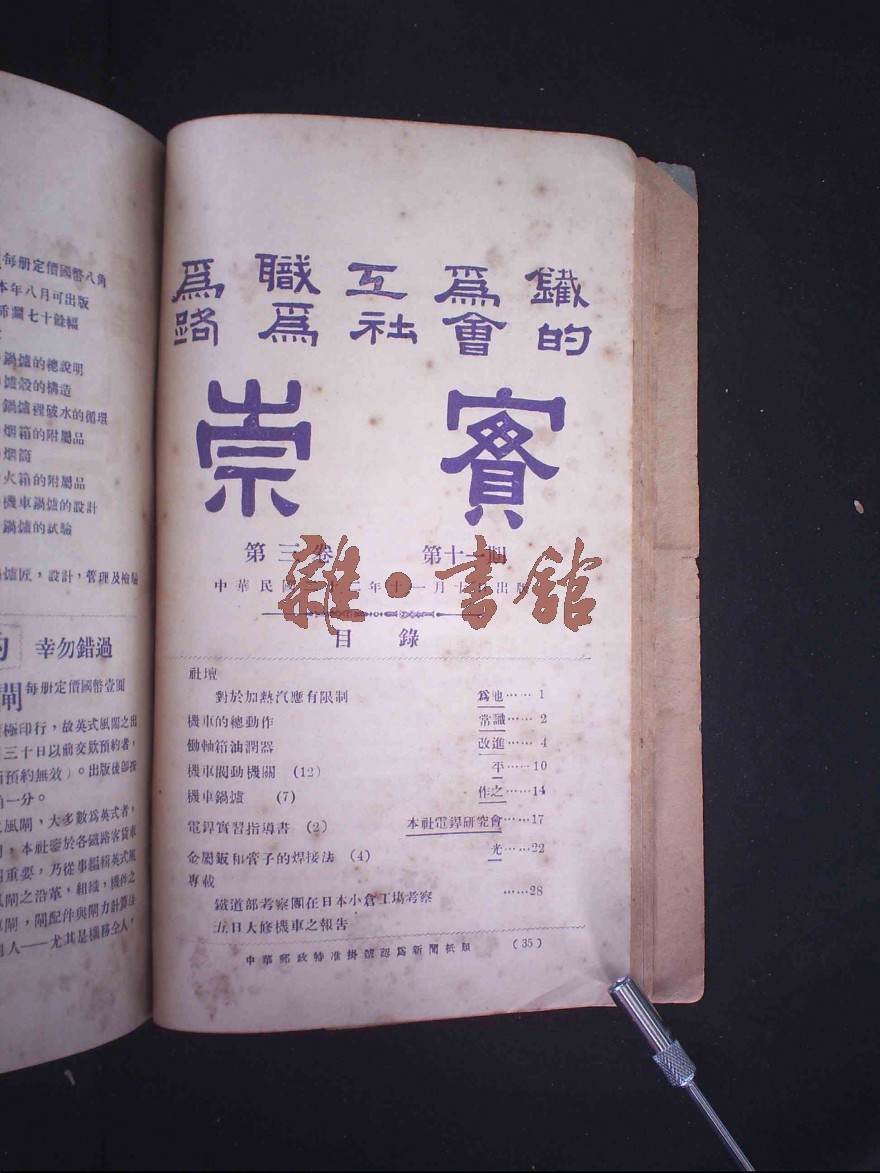 每册定價國幣八角
本年八月可出版
七十餘幅
鍋爐的總說明
爐殼的構造
鍋爐裡破水的循環
烟箱的附屬品
烟筒
火箱的附屬品
機車鍋爐的設計
鍋爐的試驗
爐匠，設計，管理及檢驗
幸勿錯過
閘每册定價國幣壹圓
極印行，故英式風閘之出
三十日以前交欵預約者，
預約無效）。出版後卽按
一分。
風閘，大多數爲英式者，
，本社鑒於各鐵路客貨車
重要，乃從事編輯英式風
閘之沿革，組織，機件之
閘，閘配件與閘力計算法
人——尤其是機務仝人，
爲職工爲鐵
路爲社會的
崇實
第三卷 第十一期
中華民國二十二年十一月十日出版
雜·書館
目錄
社壇
對於加熱汽應有限制 爲也……1
機車的總動作 常識……2
働軸箱油潤器 改進……4
機車閥動機關 (12) 平……10
機車鍋爐 (7) 作之……14
電銲實習指導書 (2) 本社電銲研究會……17
金屬鈑和管子的焊接法 (4) 光……22
專載
鐵道部考察團在日本小倉工塲考察 ……28
五日大修機車之報告
中華郵政特准掛號認爲新聞紙類 (35)